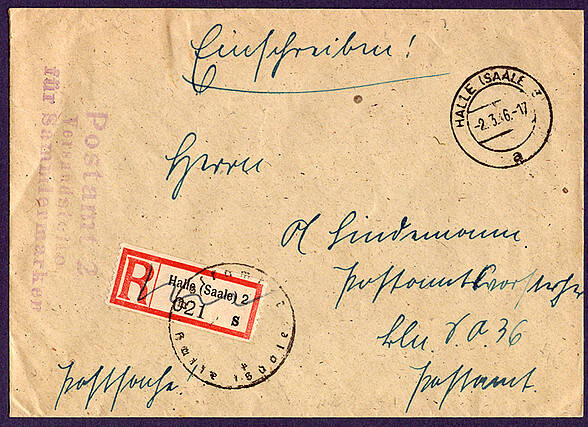 Einschreiben!
HALLE (SAALE) 2
-2.3.46.-17
a
Herrn
A Lindemann
Postamtsvorsteher
Bln. S.O. 36
Postamt.
Postsache!
R
Halle (Saale) 2
021 s
Postamt 2
Versandstelle
für Sammlermarken